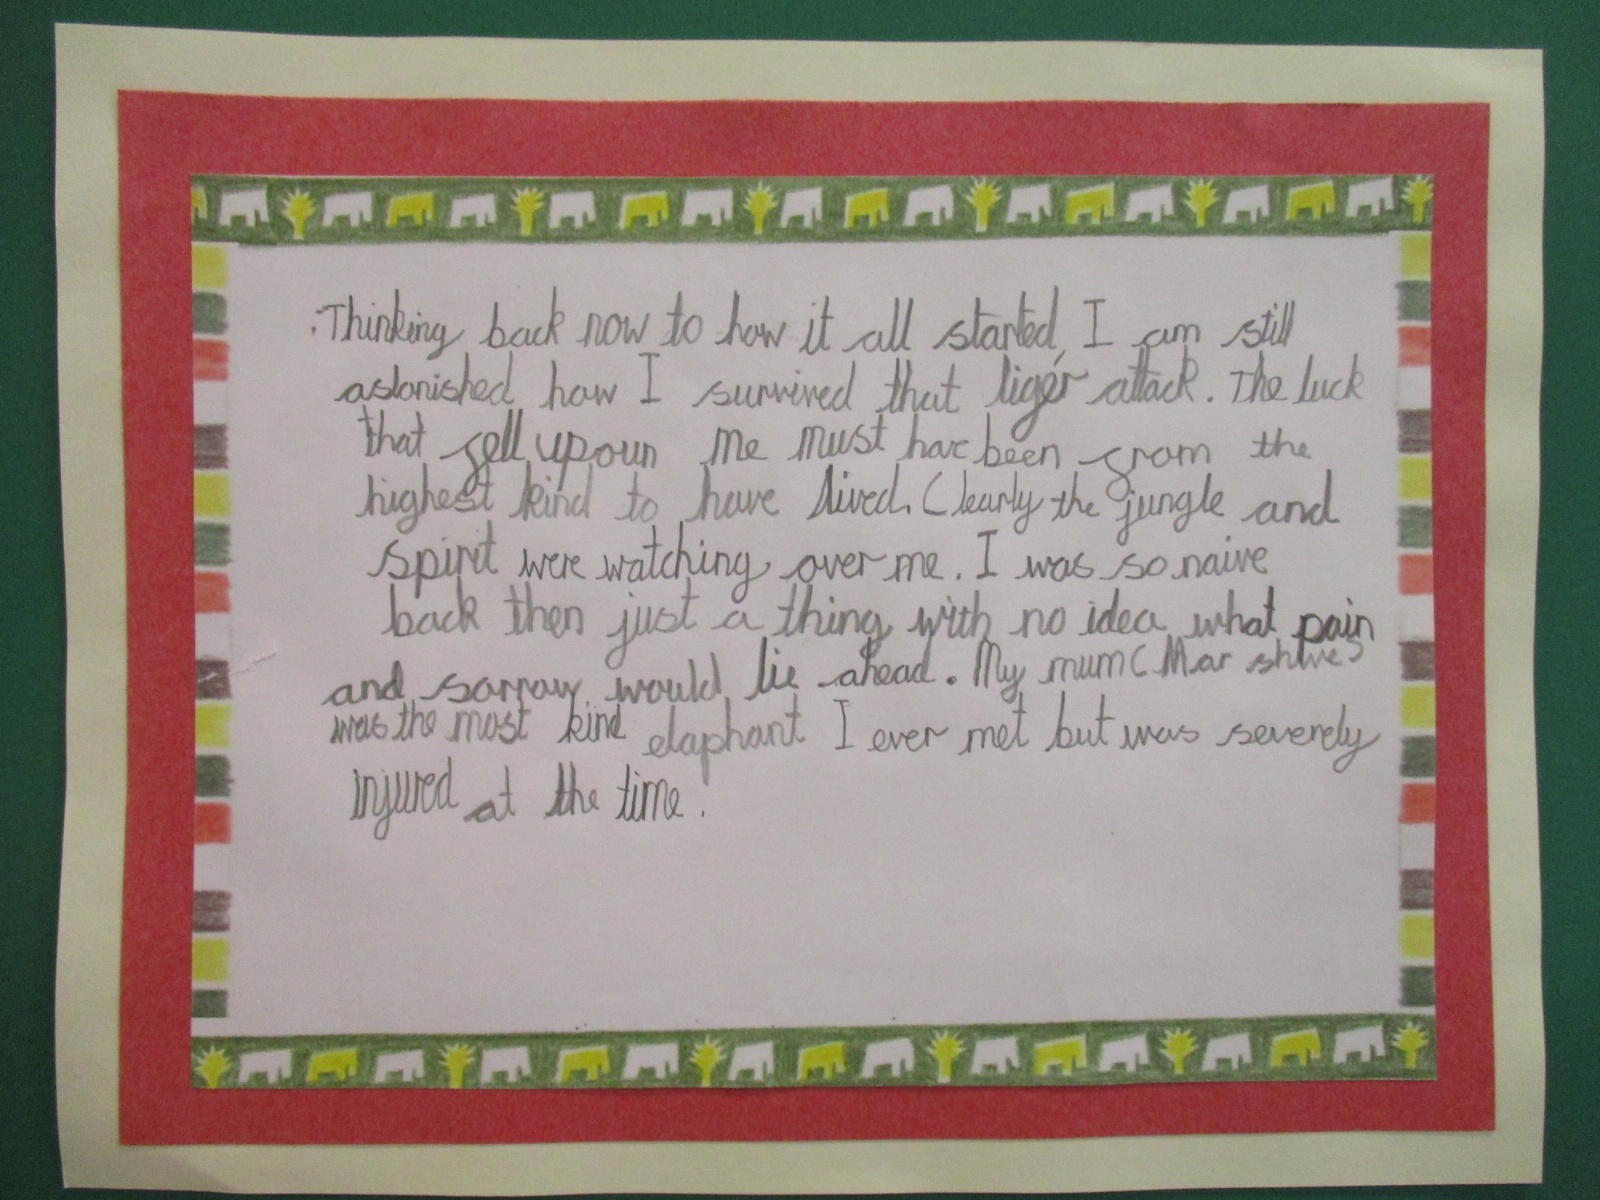 Thinking back now to how it all started, I am still
astonished how I survived that tiger attack. The luck
that fell upoun me must have been from the
highest kind to have lived. Clearly the jungle and
spirit were watching over me. I was so naive
back then just a thing with no idea what pain
and sorrow would lie ahead. My mum (Mar
was the most kind elaphant I ever met but was severely
injured at the time.